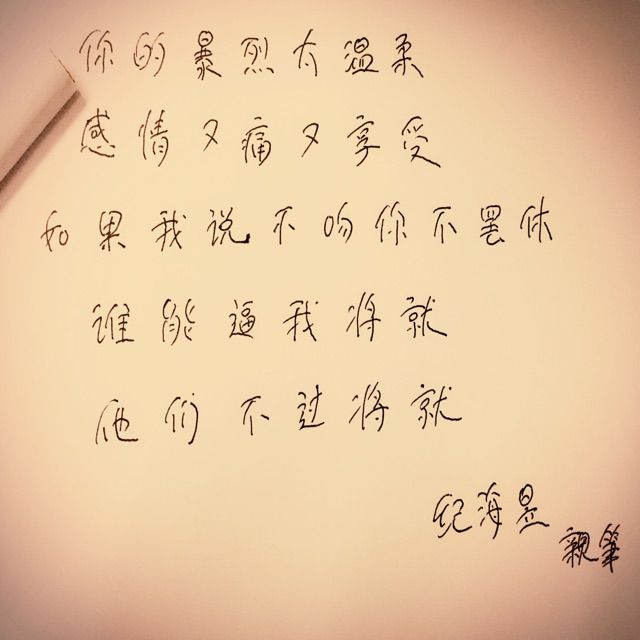 你的暴烈太温柔
感情又痛又享受
如果我说不吻你不罢休
谁能逼我将就
他们不过将就
纪海昰
親筆